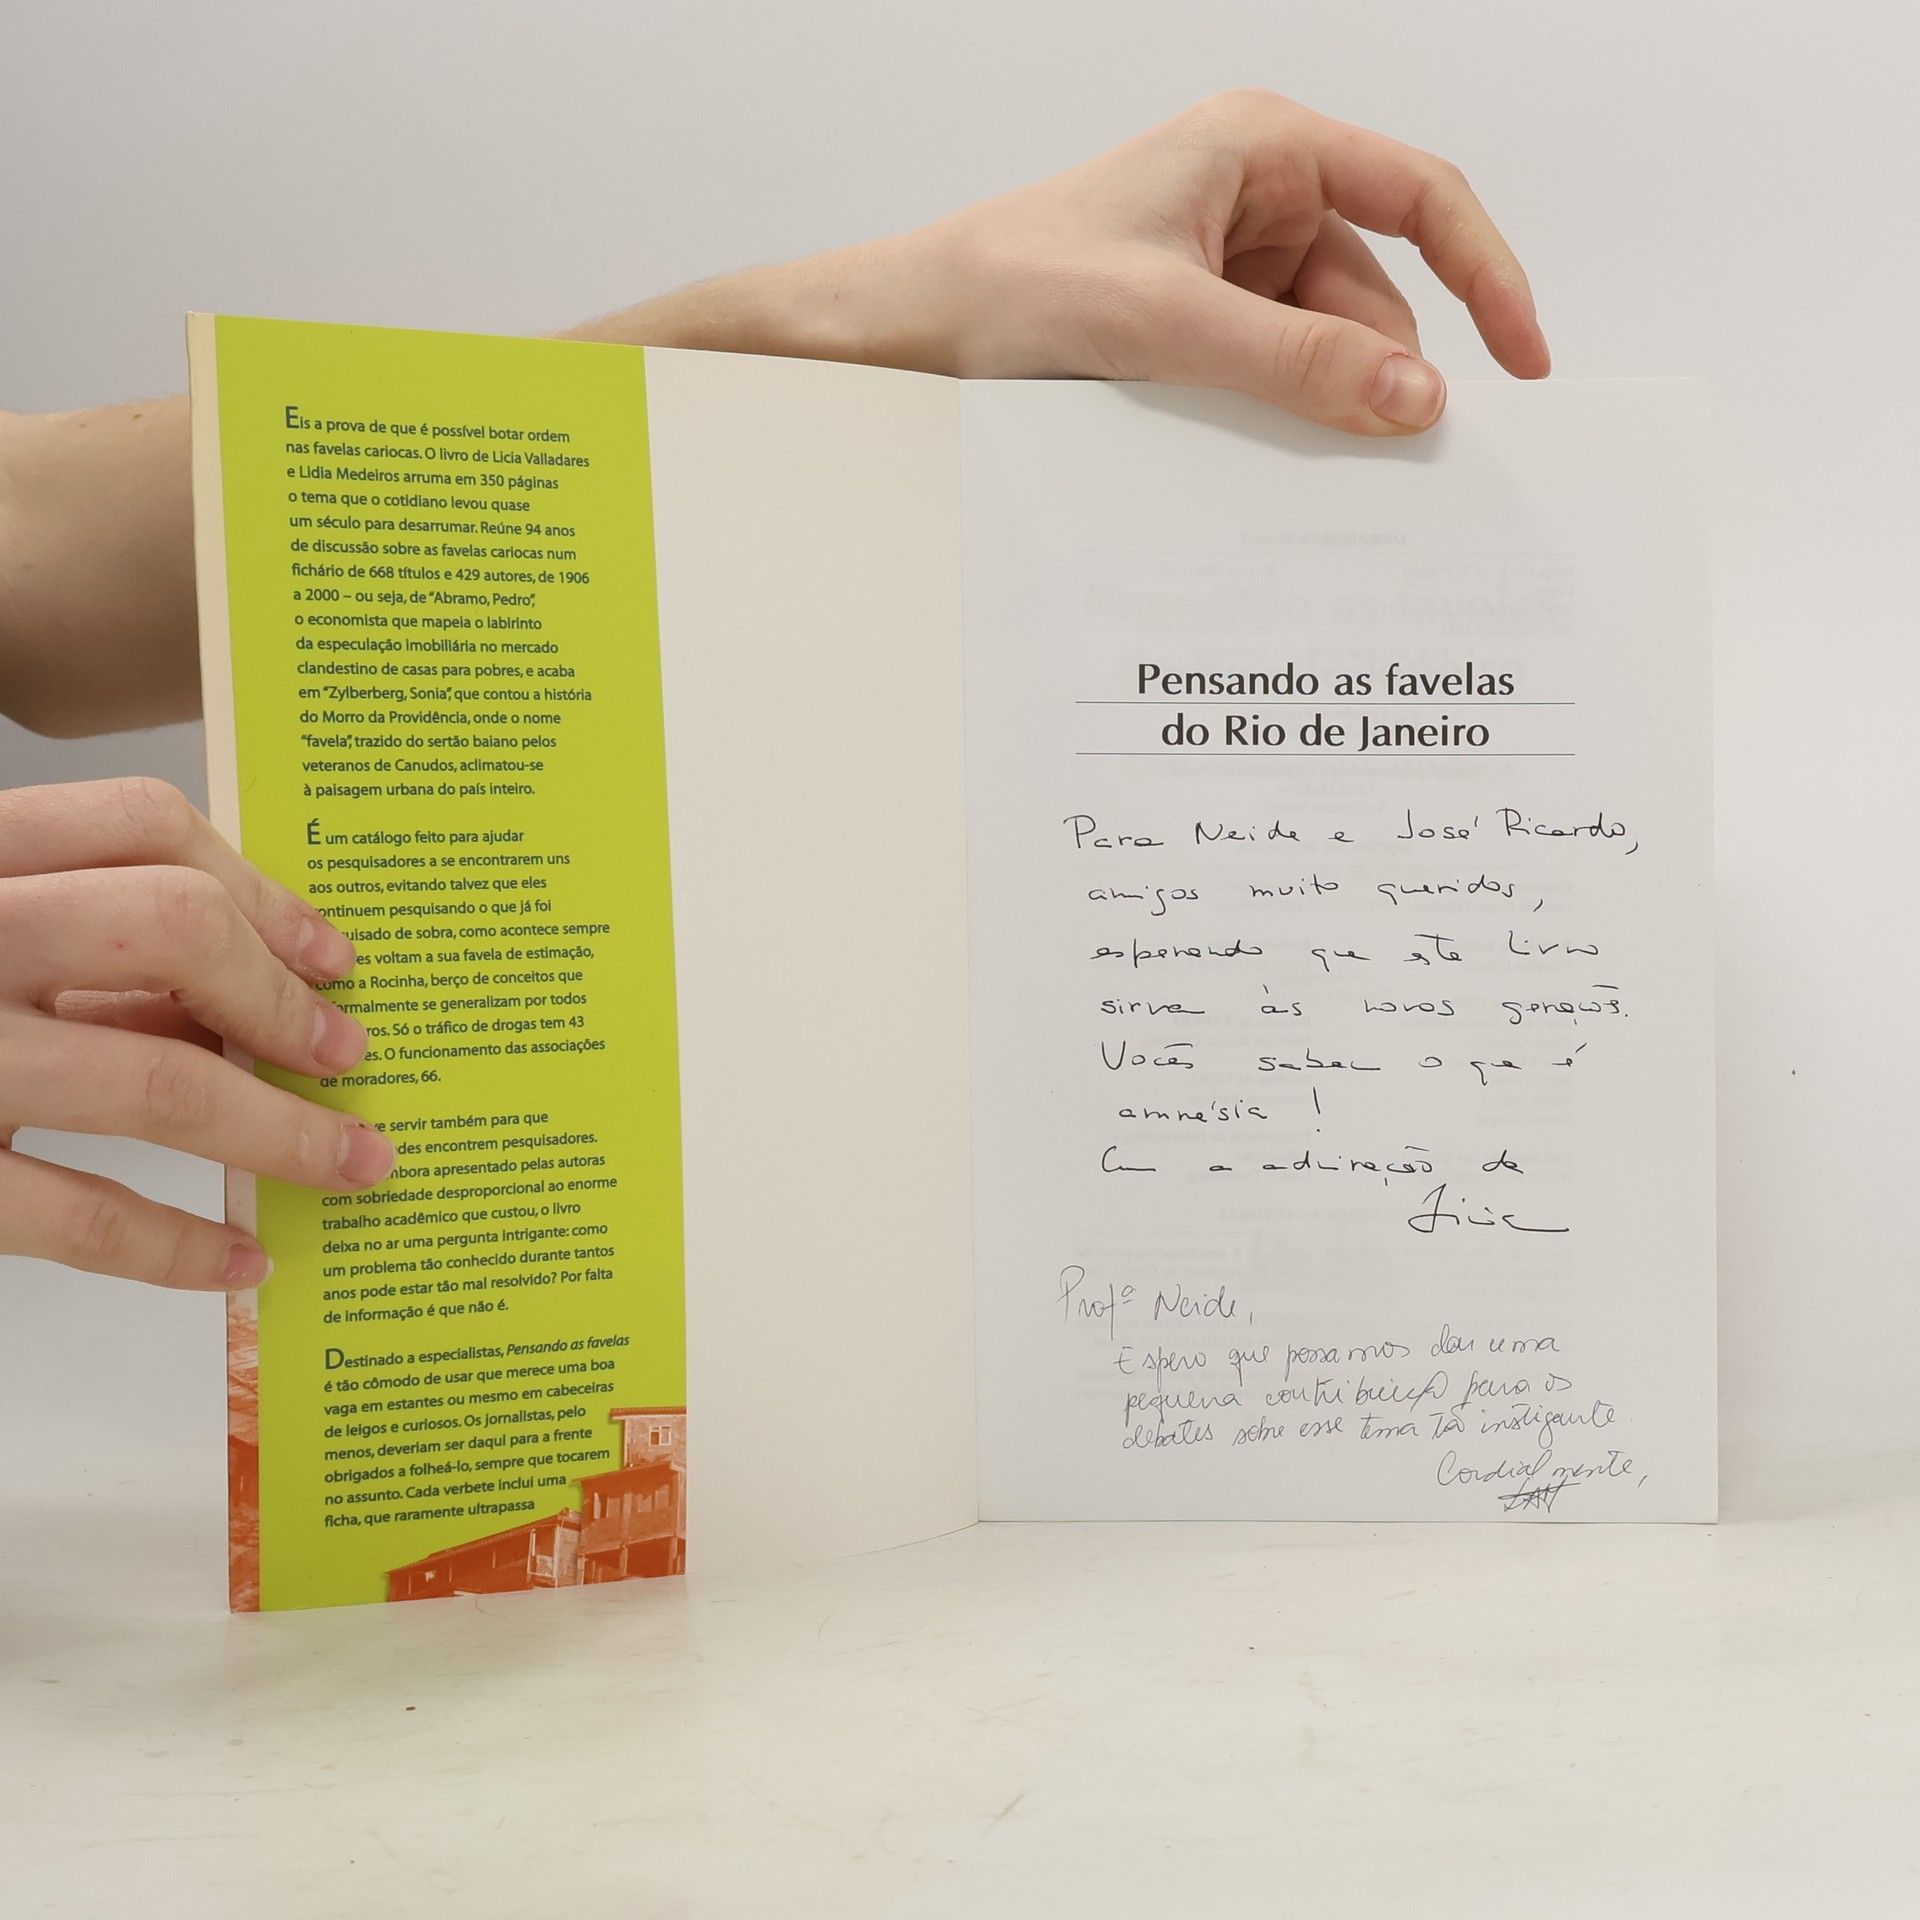 Eis a prova de que é possível botar ordem
nas favelas cariocas. O livro de Licia Valladares
e Lidia Medeiros arruma em 350 páginas
o tema que o cotidiano levou quase
um século para desarrumar. Reúne 94 anos
de discussão sobre as favelas cariocas num
fichário de 668 títulos e 429 autores, de 1906
a 2000 – ou seja, de “Abramo, Pedro”,
o economista que mapeia o labirinto
da especulação imobiliária no mercado
clandestino de casas para pobres, e acaba
em “Zylberberg, Sonia”, que contou a história
do Morro da Providência, onde o nome
“favela”, trazido do sertão baiano pelos
veteranos de Canudos, aclimatou-se
à paisagem urbana do país inteiro.
É um catálogo feito para ajudar
os pesquisadores a se encontrarem uns
aos outros, evitando talvez que eles
continuem pesquisando o que já foi
uisado de sobra, como acontece sempre
es voltam a sua favela de estimação,
como a Rocinha, berço de conceitos que
ormalmente se generalizam por todos
ros. Só o tráfico de drogas tem 43
es. O funcionamento das associações
de moradores, 66.
ve servir também para que
des encontrem pesquisadores.
mbora apresentado pelas autoras
com sobriedade desproporcional ao enorme
trabalho acadêmico que custou, o livro
deixa no ar uma pergunta intrigante: como
um problema tão conhecido durante tantos
anos pode estar tão mal resolvido? Por falta
de informação é que não é.
Destinado a especialistas, Pensando as favelas
é tão cômodo de usar que merece uma boa
vaga em estantes ou mesmo em cabeceiras
de leigos e curiosos. Os jornalistas, pelo
menos, deveriam ser daqui para a frente
obrigados a folheá-lo, sempre que tocarem
no assunto. Cada verbete inclui uma
ficha, que raramente ultrapassa
Pensando as favelas
do Rio de Janeiro
Para Neide e José Ricardo,
amigos muito queridos,
esperando que este livro
sirva às novas gerações.
Vocês sabem o que é
amnésia !
Com a admiração de
Licia
Profª Neide,
Espero que possamos dar uma
pequena contribuição para os
debates sobre esse tema tão instigante.
Cordialmente,